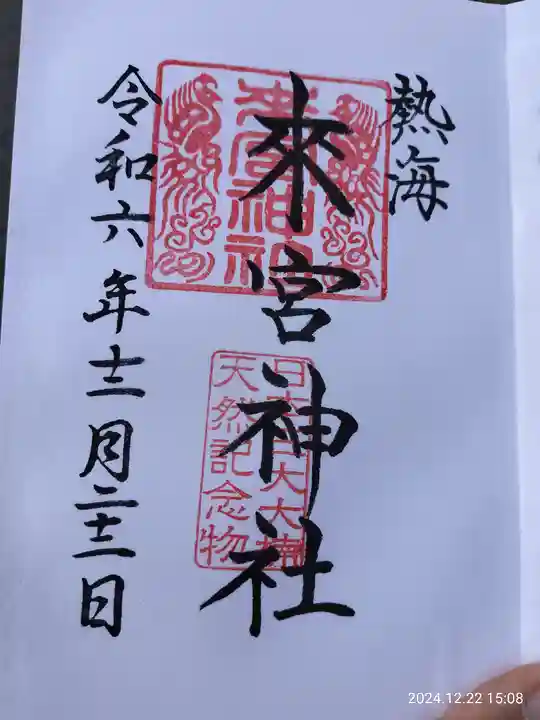 熱海
來宮神社
來宮神社
日本巨大大楠
天然記念物
令和六年十二月二十二日
2024.12.22 15:08